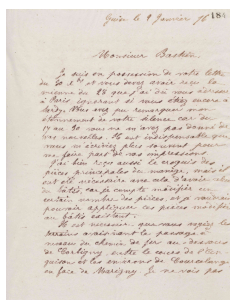 Guise le 2 Janvier 76 184
Monsieur Barbin
Je suis en possession de votre lettre
du 30 Xbre et vous devez avoir reçu la
mienne du 28 que j'ai dû vous adresser
à Paris, ignorant si vous étiez encore à
Vous avez pu remarquer mon
étonnement de votre silence car du
17 au 30 vous ne m'avez pas donné de
vos nouvelles. Il est indispensable que
vous m'écriviez plus souvent pour
me faire part de vos impressions.
J'ai bien reçu aussi le croquis des
pièces principales du manège, mais il
m'est nécessaire avec cela d'avoir celui
du bâtis, car je compte modifier un
certain nombre des pièces et je voudrais
pouvoir appliquer ces pièces modifiées
au bâtis existant.
Il est nécessaire que vous ayez les
avoisinant le passage à
niveau du chemin de fer au-dessous
de entre le cours de
et les environs de
en face de Marigny. Je ne vois pas